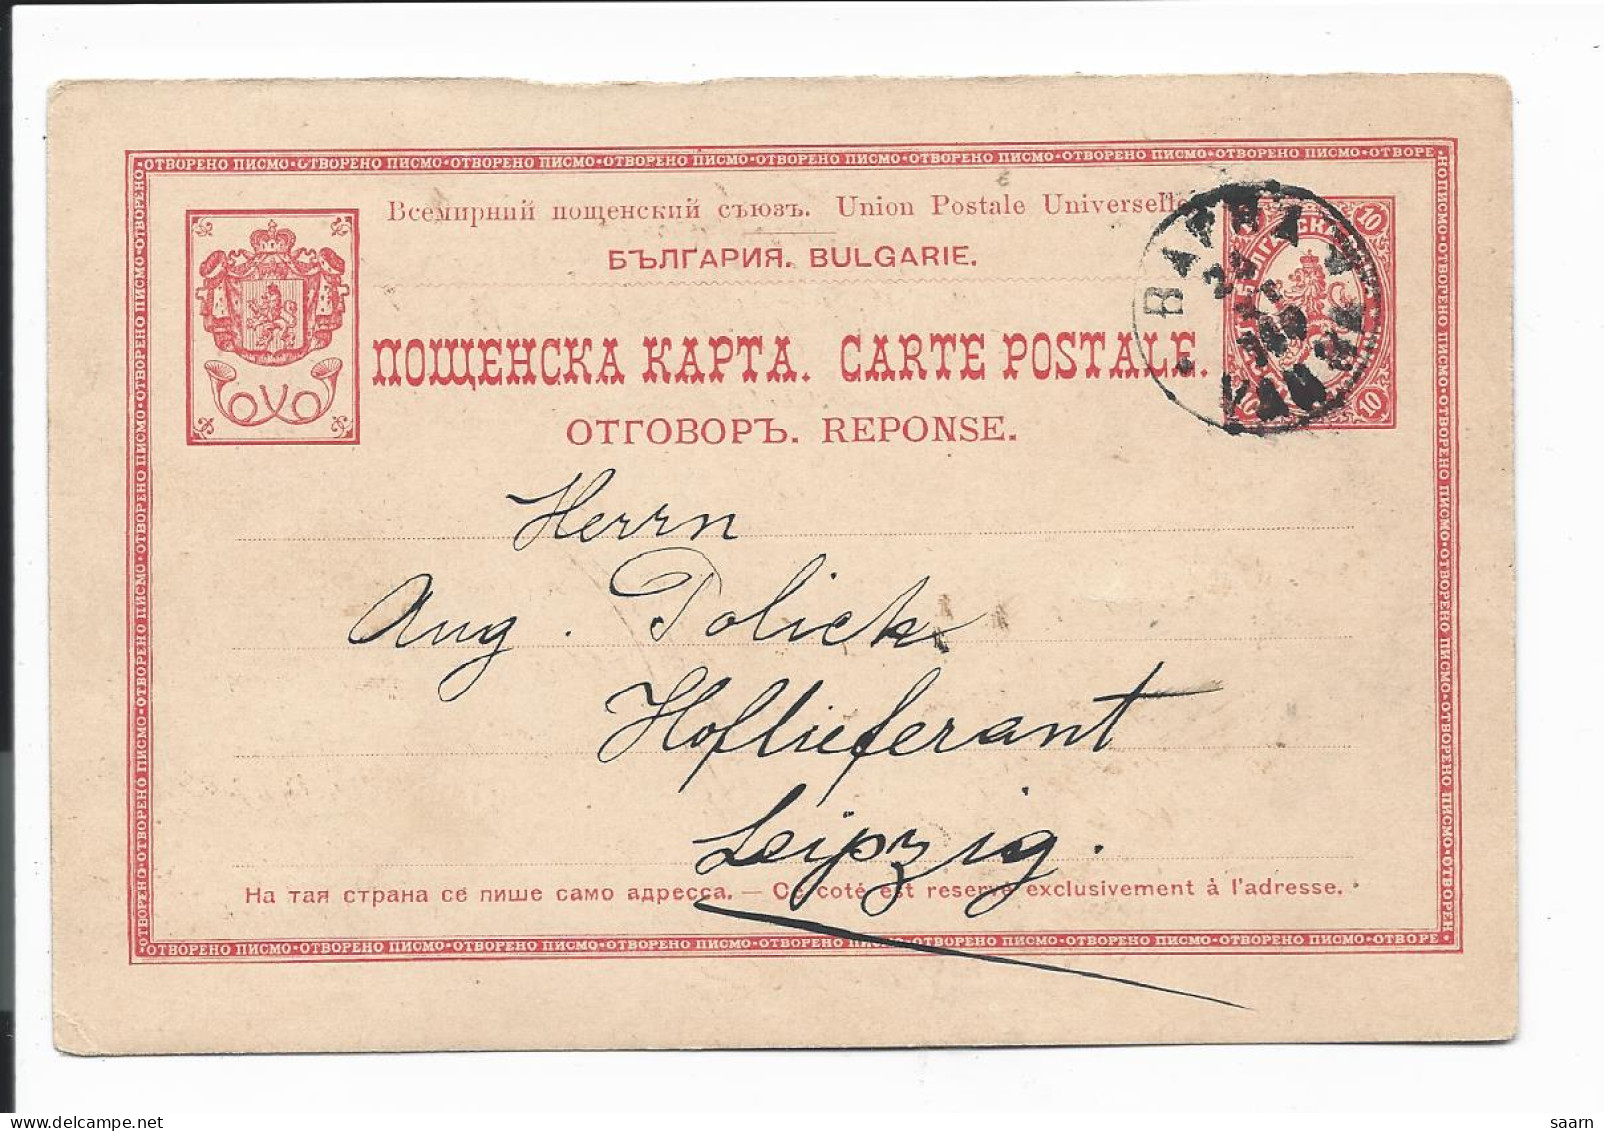 ОТВОРЕНО ПИСМО·ОТВОРЕНО ПИСМО·ОТВОРЕНО ПИСМО·ОТВОРЕНО ПИСМО·ОТВОРЕНО ПИСМО·ОТВОРЕНО ПИСМО·ОТВОРЕНО ПИСМО·ОТВОРЕНО ПИСМО·ОТВОРЕ
Всемирний пощенский съюзъ. Union Postale Universelle
БЪЛГАРИЯ. BULGARIE.
ПОЩЕНСКА КАРТА. CARTE POSTALE.
ОТГОВОРЪ. REPONSE.
ВАРНА
VARNA
10 10
10 10
Herrn
Aug. Polich
Hoflieferant
Leipzig.
На тая страна се пише само адресса. — Ce coté est reservé exclusivement à l'adresse.
ОТВОРЕНО ПИСМО·ОТВОРЕНО ПИСМО·ОТВОРЕНО ПИСМО·ОТВОРЕНО ПИСМО·ОТВОРЕНО ПИСМО·ОТВОРЕНО ПИСМО·ОТВОРЕНО ПИСМО·ОТВОРЕНО ПИСМО·ОТВОРЕ
saarn